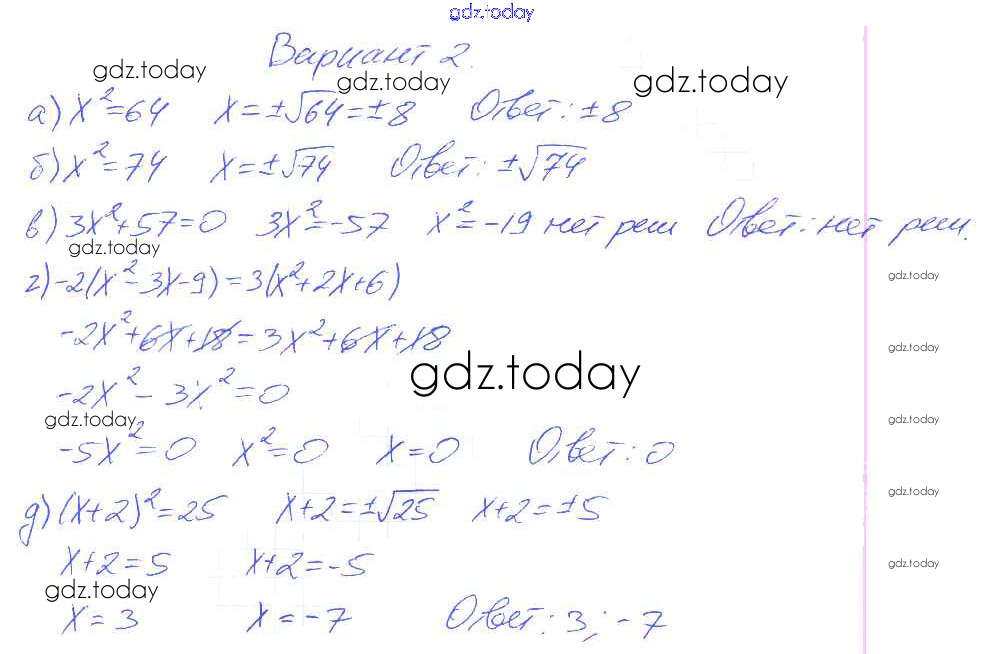 gdz.today
Вариант 2.
gdz.today gdz.today gdz.today
а) x²=64 x=±√64=±8 Ответ: ±8
б) x²=74 x=±√74 Ответ: ±√74
в) 3x²+57=0 3x²=-57 x²=-19 нет реш Ответ: нет реш.
gdz.today
г) -2(x²-3x-9)=3(x²+2x+6)
gdz.today
-2x²+6x+18=3x²+6x+18
gdz.today
gdz.today
-2x²-3x²=0
gdz.today gdz.today
-5x²=0 x²=0 x=0 Ответ: 0
gdz.today
д) (x+2)²=25 x+2=±√25 x+2=±5
x+2=5 x+2=-5
gdz.today gdz.today
x=3 x=-7 Ответ: 3; -7